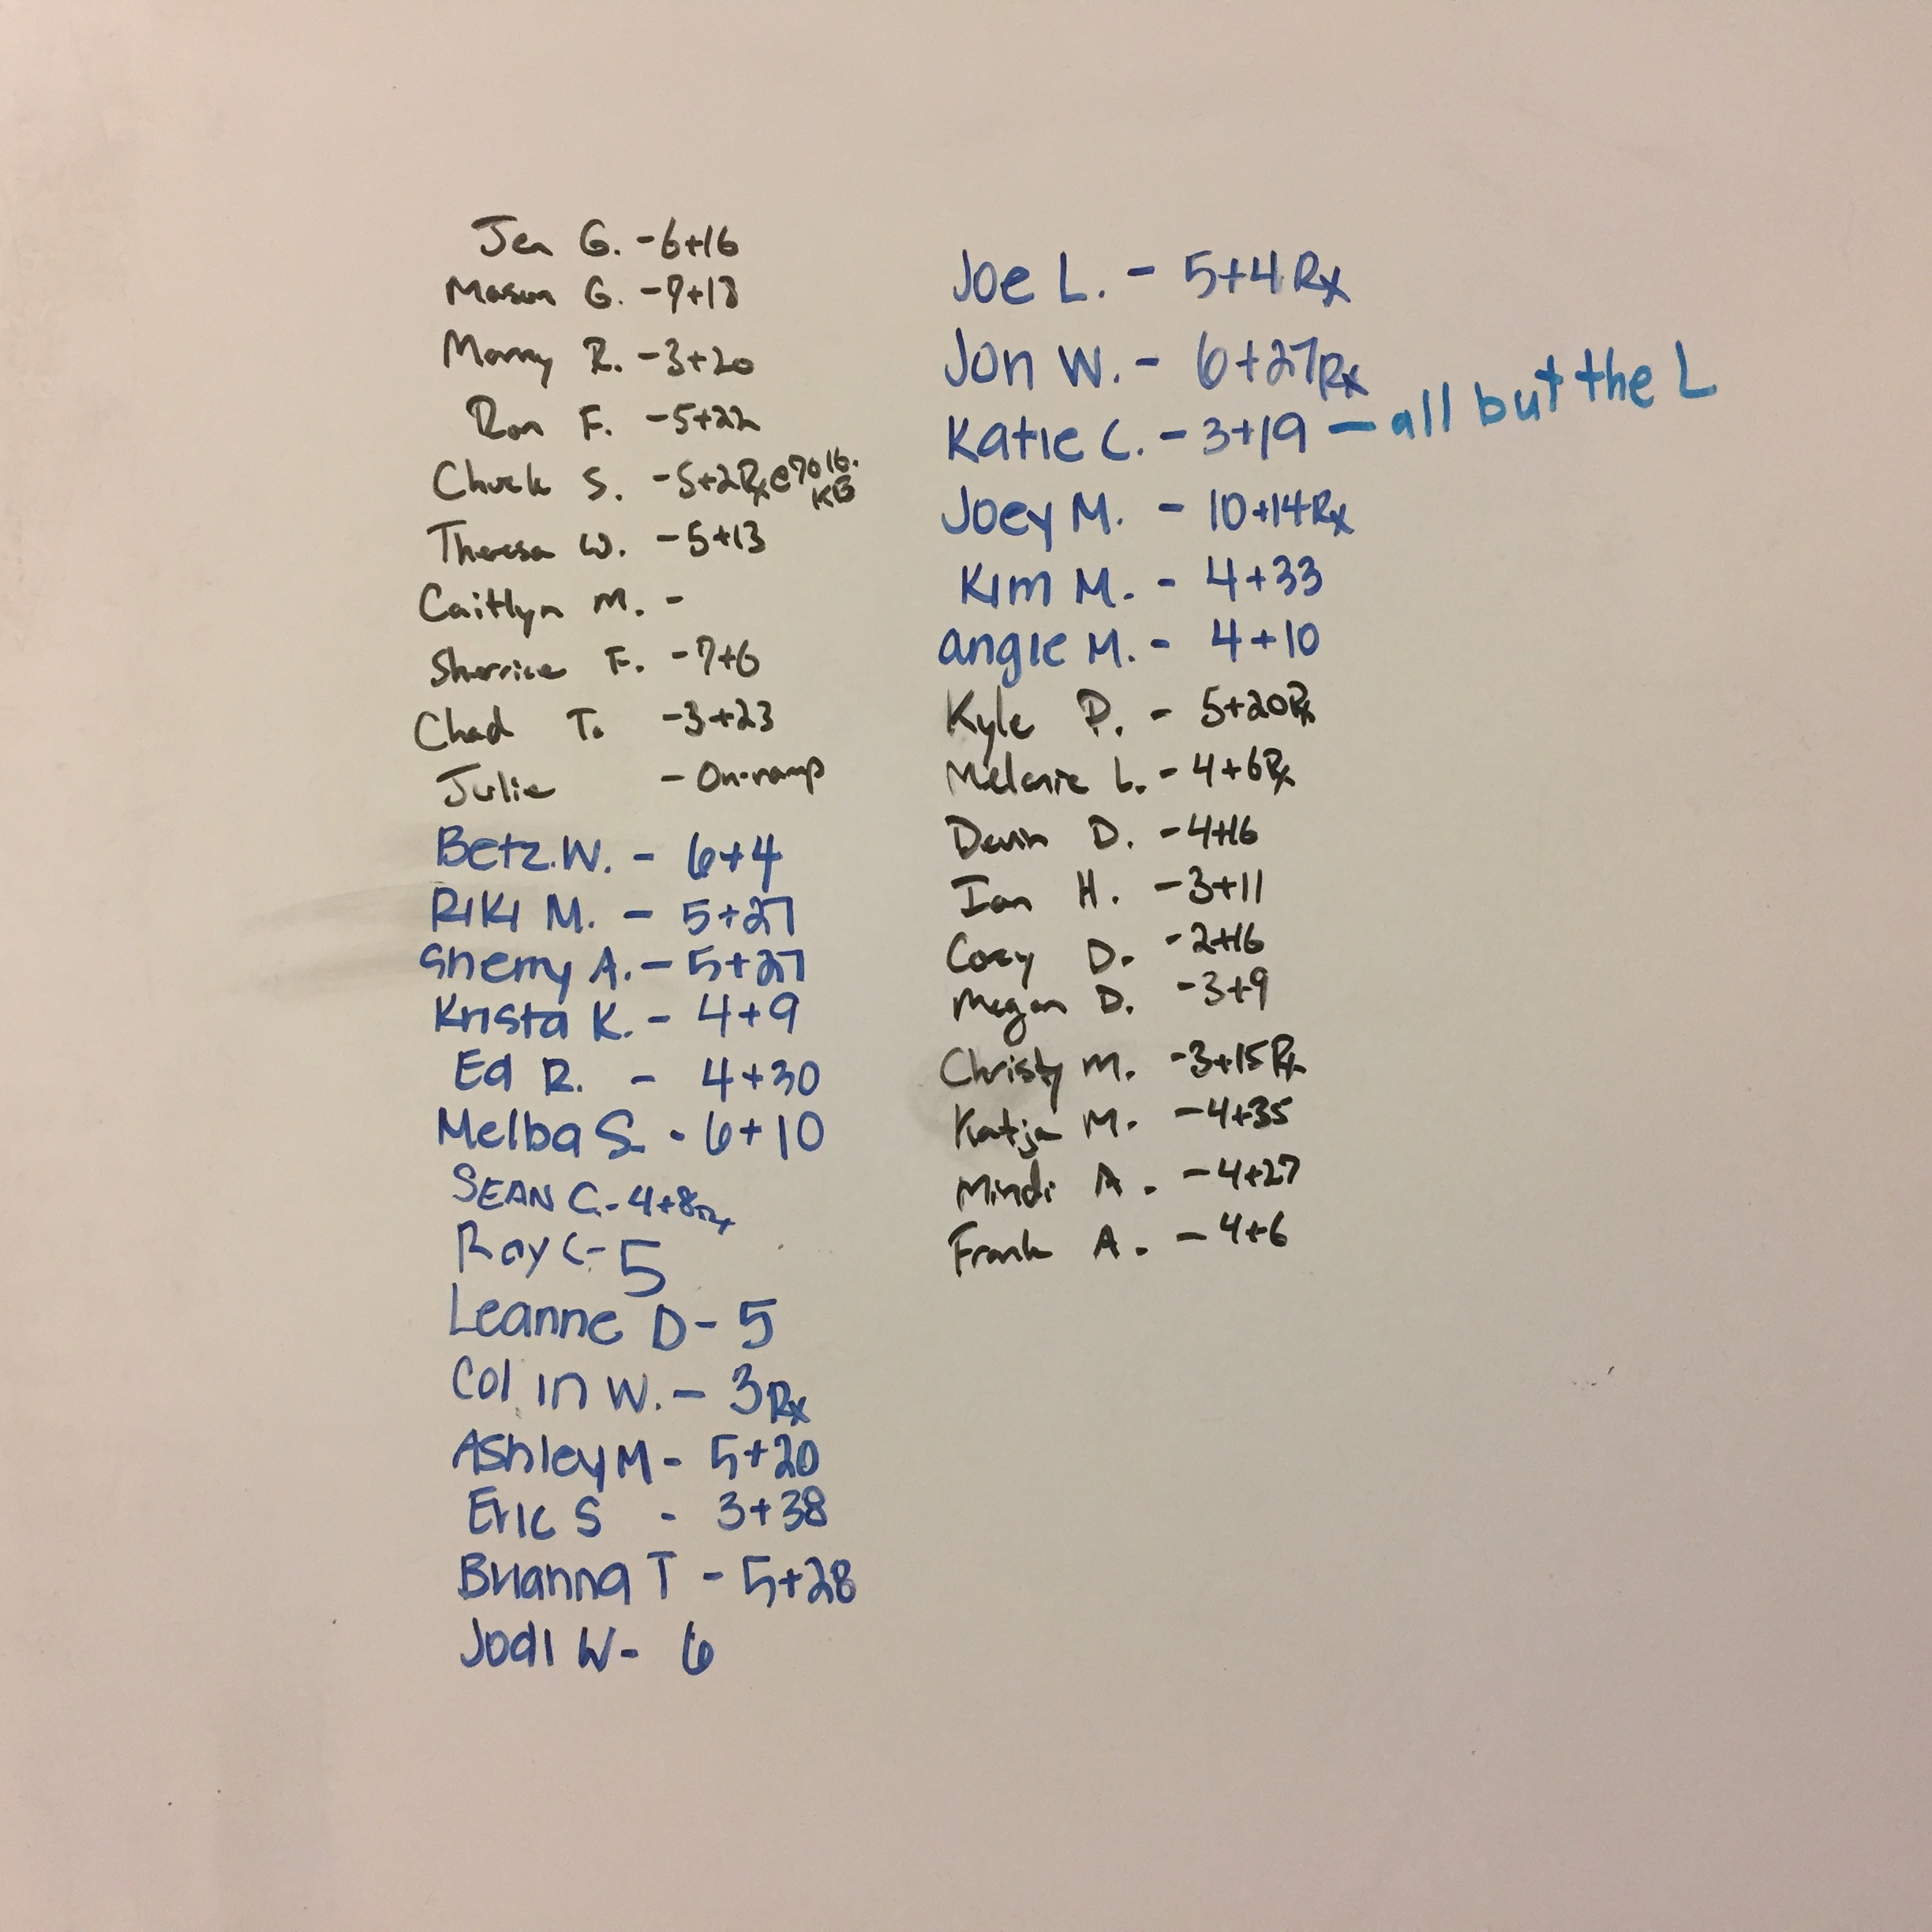 Jen G. -6+16
Mason G. -7+18
Manny R. -3+20
Ron F. -5+22
Chuck S. -5+2Rx@70lb. KB
Theresa W. -5+13
Caitlyn M. -
Sherrice F. -7+6
Chad T. -3+23
Julie - On-ramp
Betz.W. - 6+4
Riki M. - 5+27
Sherry A. - 5+27
Krista K. - 4+9
Ed R. - 4+30
Melba S - 6+10
SEAN C. - 4+8Rx
Roy C - 5
Leanne D - 5
Colin W. - 3Rx
Ashley M - 5+20
Eric S - 3+38
Brianna T - 5+28
Jodi W - 6
Joe L. - 5+4Rx
Jon W. - 6+27Rx
Katie C. - 3+19 - all but the L
Joey M. - 10+14Rx
Kim M. - 4+33
angie M. - 4+10
Kyle P. - 5+20Rx
Melanie L. - 4+6Rx
Devin D. - 4+16
Ian H. - 3+11
Corey D. - 2+16
Megan D. - 3+9
Christy M. - 3+15Rx
Katja M. - 4+35
Mindi A. - 4+27
Frank A. - 4+6